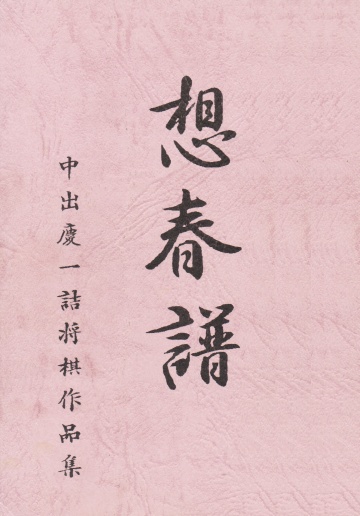 想春譜
中出慶一詰将棋作品集